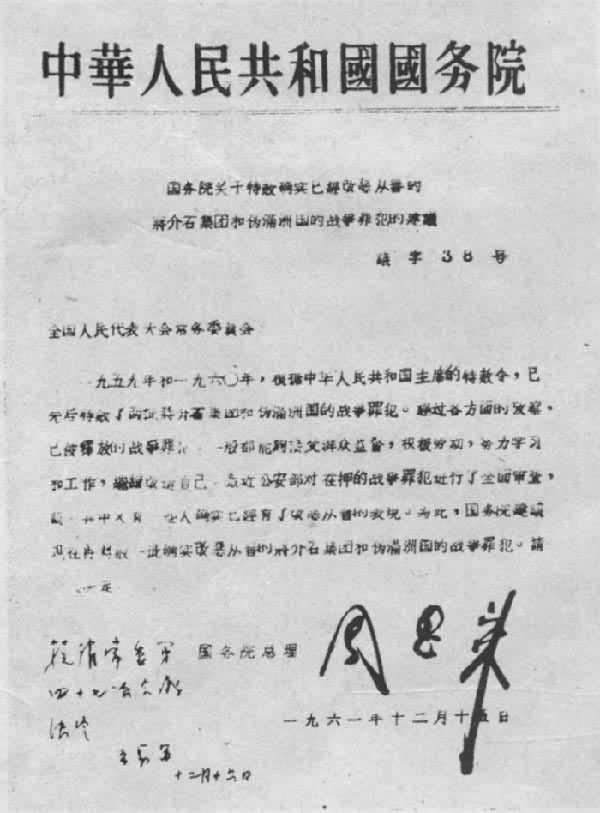 中華人民共和國國务院
国务院关于特赦确实已經改恶从善的
蔣介石集团和伪滿洲国的战爭罪犯的建議
議字38号
全国人民代表大会常务委員会
一九五九年和一九六〇年，根据中华人民共和国主席的特赦令，已
先后特赦了两批蔣介石集团和伪滿洲国的战爭罪犯。
已被釋放的战爭罪犯 一般都能 接受群众监督，积极劳动，努力学习
和工作，繼續改造自己 最近公安部对在押的战爭罪犯进行了全面审查，
人确实已經有了改恶从善的表现。为此，国务院建議
现在再特赦一批确实改恶从善的蔣介石集团和伪滿洲国的战爭罪犯。請
国务院总理
周恩来
一九六一年十二月十五日
十二月十六日